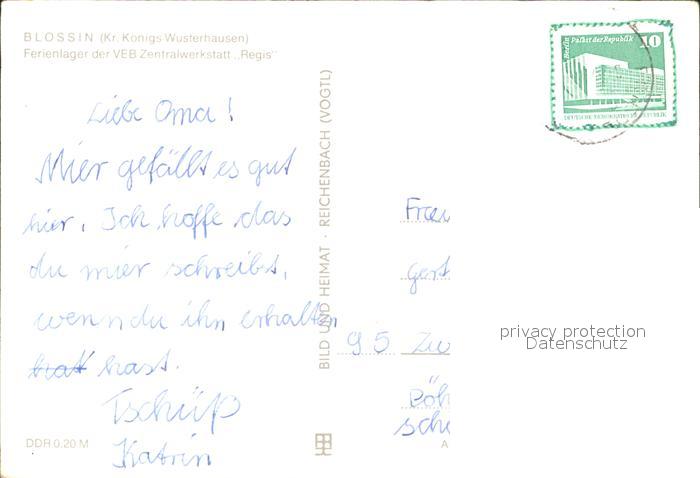 BLOSSIN (Kr. Königs-Wusterhausen)
Ferienlager der VEB Zentralwerkstatt „Regis"
Liebe Oma!
Mier gefällt es gut
hier. Ich hoffe das
du mier schreibst,
wenn du ihn erhalten
hat hast.
Tschüß
Katrin
DDR 0.20 M
BILD UND HEIMAT · REICHENBACH (VOGTL)
Berlin Palast der Republik 10
DEUTSCHE DEMOKRATISCHE REPUBLIK
Frau
gert
95 Zw
privacy protection
Datenschutz
A